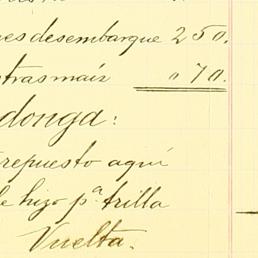 es desembarque 250.
tras maíz " 70.
donga:
repuesto aquí
e hizo pª trilla
Vuelta.